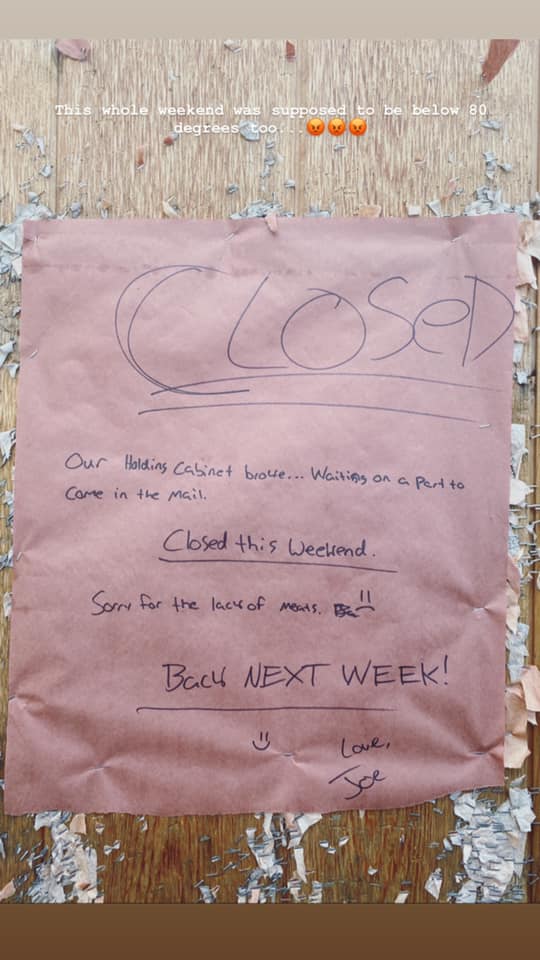 This whole weekend was supposed to be below 80
degrees too...😡😡😡
CLOSeD
Our Holding Cabinet broke... Waiting on a Part to
Come in the Mail.
Closed this Weekend.
Sorry for the lack of meats.
Back NEXT WEEK!
Love,
Joe